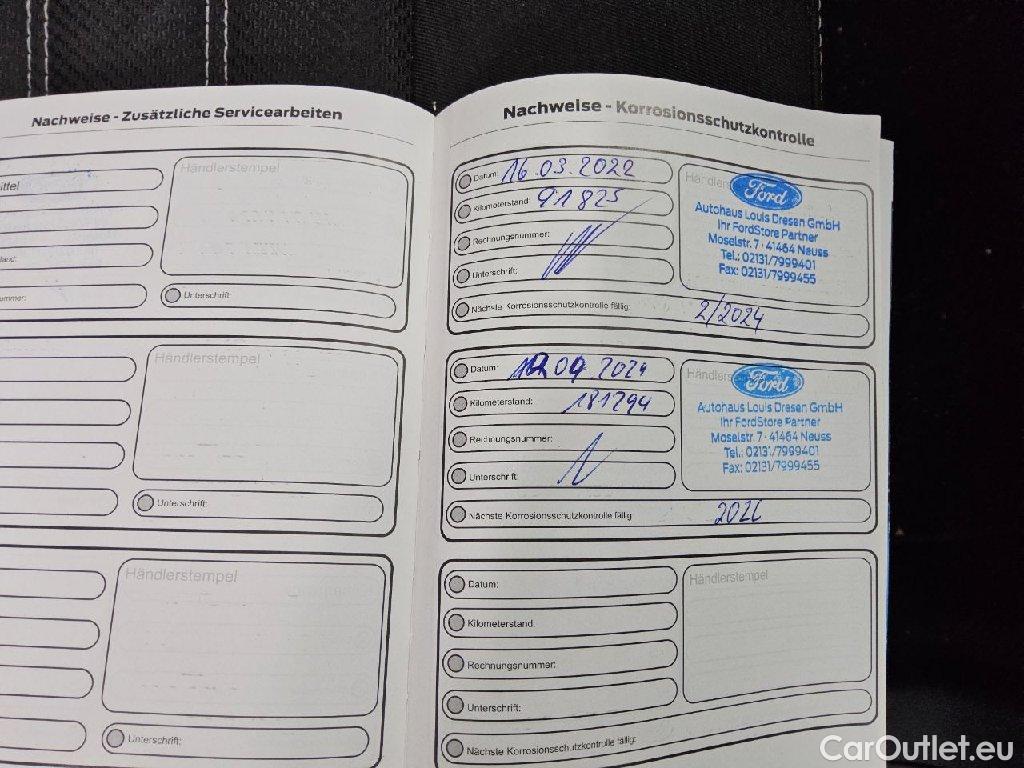 Nachweise - Zusätzliche Servicearbeiten
Händlerstempel
Unterschrift:
Händlerstempel
Unterschrift:
Händlerstempel
Unterschrift:
Nachweise - Korrosionsschutzkontrolle
Datum: 16.03.2022
Kilometerstand: 91825
Rechnungsnummer:
Unterschrift:
Nächste Korrosionsschutzkontrolle fällig: 2/2024
Ford
Autohaus Louis Dresen GmbH
Ihr FordStore Partner
Moselstr. 7 · 41464 Neuss
Tel.: 02131/7999401
Fax: 02131/7999455
Datum: 2024
Kilometerstand: 181294
Rechnungsnummer:
Unterschrift:
Nächste Korrosionsschutzkontrolle fällig: 2026
Ford
Autohaus Louis Dresen GmbH
Ihr FordStore Partner
Moselstr. 7 · 41464 Neuss
Tel.: 02131/7999401
Fax: 02131/7999455
Datum:
Kilometerstand:
Rechnungsnummer:
Unterschrift:
Nächste Korrosionsschutzkontrolle fällig:
Händlerstempel
CarOutlet.eu